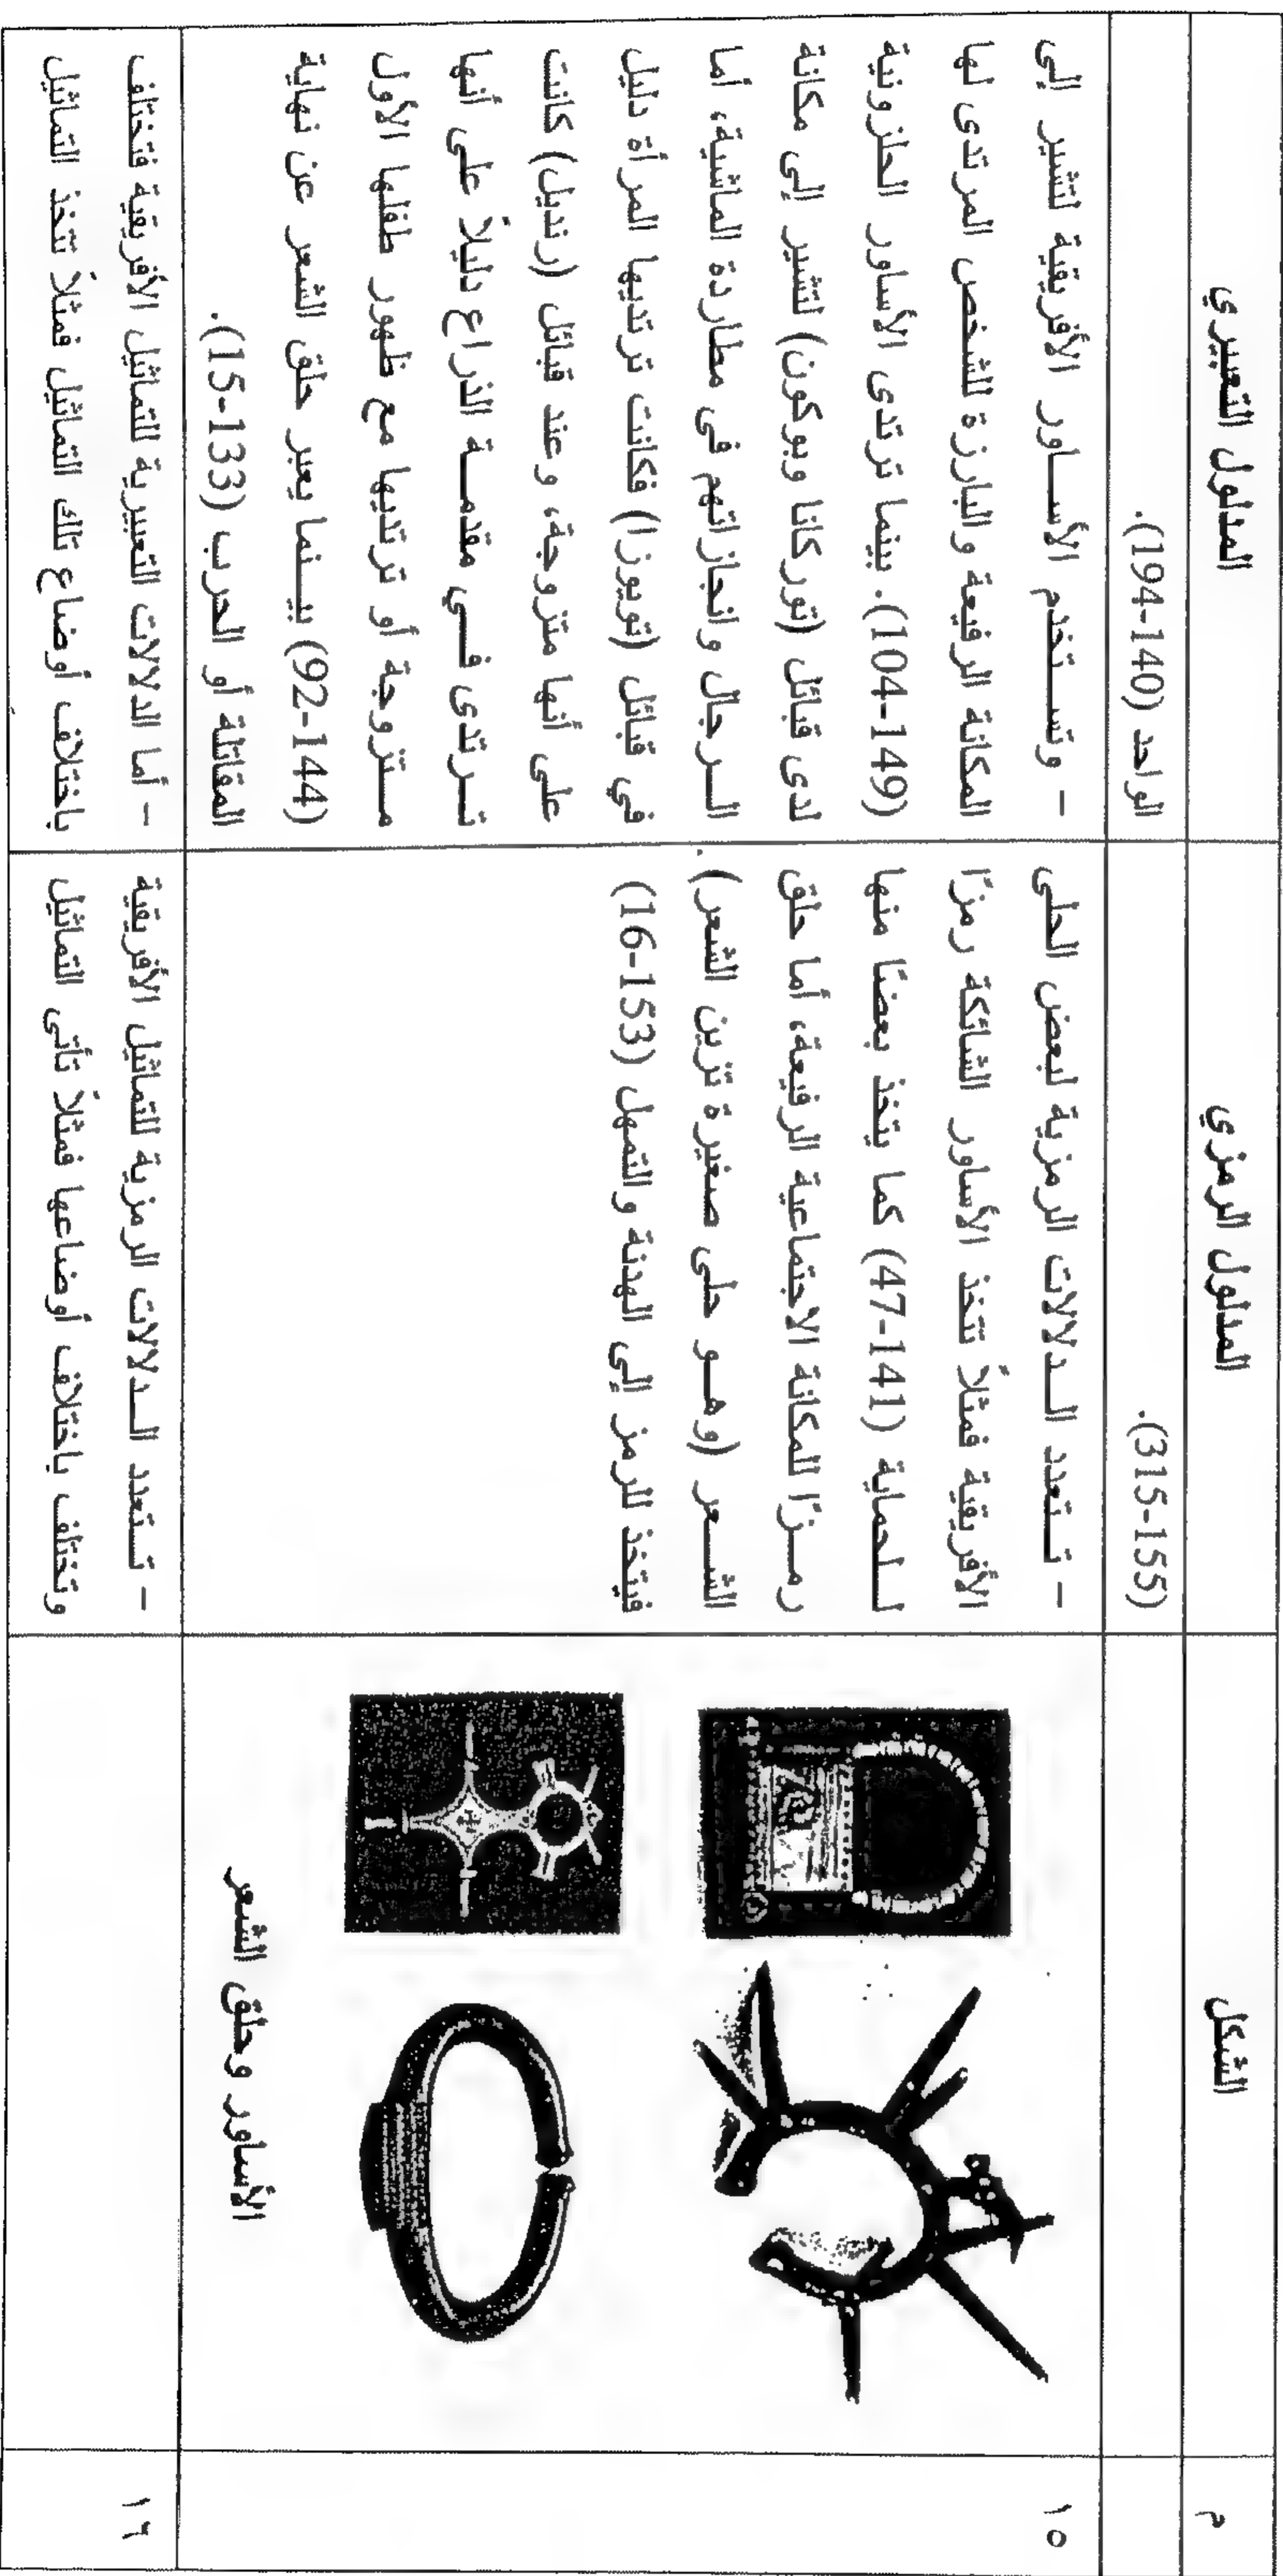 م
الشكل
المدلول الرمزي
المدلول التعبيري
(315-155).
الواحد (194-140).
١٥
الأساور وحلق الشعر
- تتعدد الدلالات الرمزية لبعض الحلى
الأفريقية فمثلاً تتخذ الأساور الشائكة رمزًا
للحماية (47-141) كما يتخذ بعضًا منها
رمزًا للمكانة الاجتماعية الرفيعة، أما حلق
الشعر (وهو حلى صغيرة تزين الشعر).
فيتخذ للرمز إلى الهدنة والتمهل (16-153)
- وتستخدم الأساور الأفريقية لتشير إلى
المكانة الرفيعة والبارزة للشخص المرتدى لها
(104-149). بينما ترتدى الأساور الحلزونية
لدى قبائل (توركانا وبوكون) لتشير إلى مكانة
الرجال وانجازاتهم فى مطاردة الماشية، أما
في قبائل (توبوزا) فكانت ترتديها المرأة دليل
على أنها متزوجة، وعند قبائل (رنديل) كانت
ترتدى فى مقدمة الذراع دليلاً على أنها
متزوجة أو ترتديها مع ظهور طفلها الأول
(92-144) بينما يعبر حلق الشعر عن نهاية
المقاتلة أو الحرب (15-133).
١٦
- تتعدد الدلالات الرمزية للتماثيل الأفريقية
وتختلف باختلاف أوضاعها فمثلاً تأتى التماثيل
- أما الدلالات التعبيرية للتماثيل الأفريقية فتختلف
باختلاف أوضاع تلك التماثيل فمثلاً تتخذ التماثيل